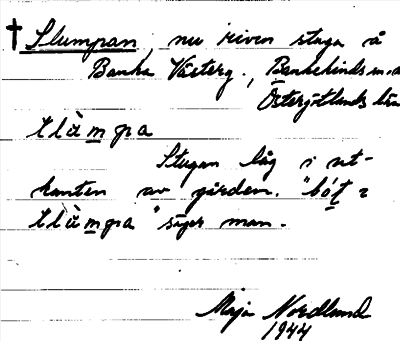 † Slumpan, nu riven stuga å
Banka Västerg., Bankekinds sn.
Östergötlands län
Stugan låg i ut-
kanten av gärden. "bót i
" säger man.
Maja Nordlund
1944